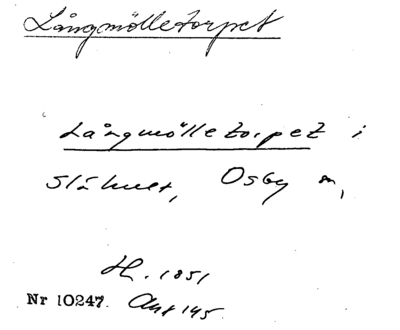 Långmölletorpet
Långmölletorpet i
Slähult, Osby sn,
H. 1851
Nr 10247. Ant 145